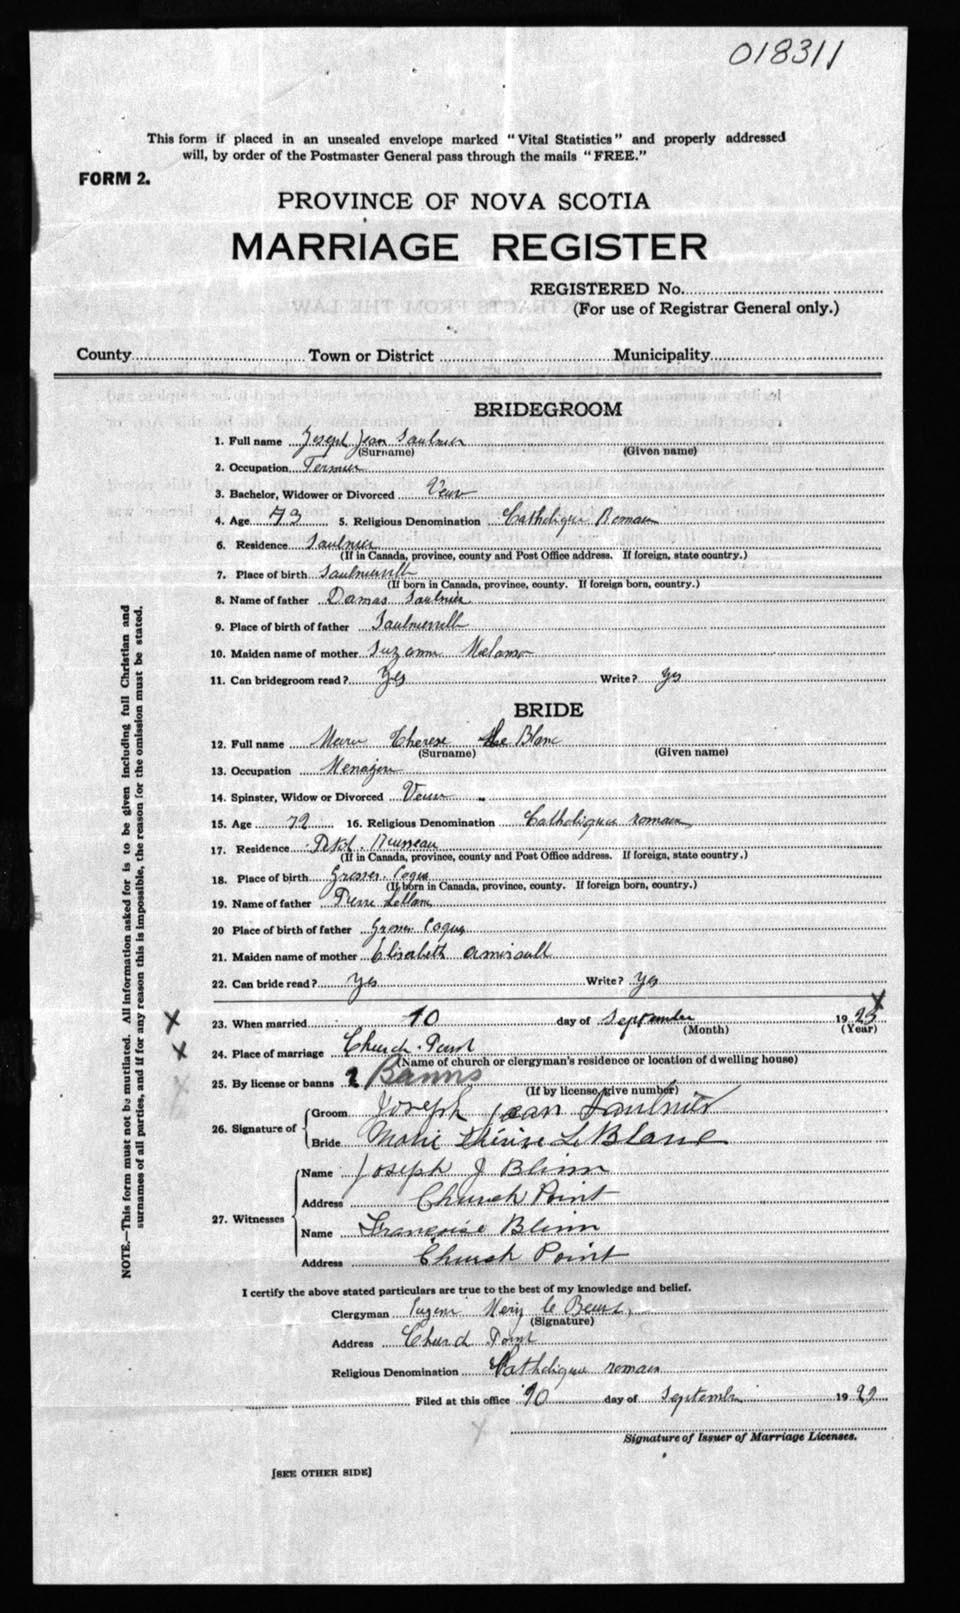 018311
This form if placed in an unsealed envelope marked "Vital Statistics" and properly addressed
will, by order of the Postmaster General pass through the mails "FREE."
FORM 2.
PROVINCE OF NOVA SCOTIA
MARRIAGE REGISTER
REGISTERED No.
(For use of Registrar General only.)
County Town or District Municipality
BRIDEGROOM
1. Full name Joseph Jean Saulnier
(Surname) (Given name)
2. Occupation Fermier
3. Bachelor, Widower or Divorced Veuv
4. Age 73 5. Religious Denomination Catholique Romain
6. Residence Saulnier
(If in Canada, province, county and Post Office address. If foreign, state country.)
7. Place of birth Saulnierville
(If born in Canada, province, county. If foreign born, country.)
8. Name of father Damas Saulnier
9. Place of birth of father Saulnierville
10. Maiden name of mother Suzanne Melanson
11. Can bridegroom read? Yes Write? Yes
BRIDE
12. Full name Marie Therese Le Blanc
(Surname) (Given name)
13. Occupation Menagere
14. Spinster, Widow or Divorced Veuve
15. Age 72 16. Religious Denomination Catholique romain
17. Residence Petit Ruisseau
(If in Canada, province, county and Post Office address. If foreign, state country.)
18. Place of birth Grosses Coques
(If born in Canada, province, county. If foreign born, country.)
19. Name of father Pierre LeBlanc
20 Place of birth of father Grosses Coques
21. Maiden name of mother Elisabeth Amirault
22. Can bride read? Yes Write? Yes
23. When married 10 day of September 1925
(Month) (Year)
24. Place of marriage Church Point
(Name of church or clergyman's residence or location of dwelling house)
25. By license or banns 2 Banns
(If by license, give number)
26. Signature of Groom Joseph jean Saulnier
Bride Marie Thérèse Le Blanc
27. Witnesses Name Joseph J Blinn
Address Church Point
Name Françoise Blinn
Address Church Point
I certify the above stated particulars are true to the best of my knowledge and belief.
Clergyman Eugene
(Signature)
Address Church Point
Religious Denomination Catholique romain
Filed at this office 10 day of September 19
Signature of Issuer of Marriage Licenses.
[SEE OTHER SIDE]
NOTE.—This form must not be mutilated. All information asked for is to be given including full Christian and
surnames of all parties, and if for any reason this is impossible, the reason for the omission must be stated.